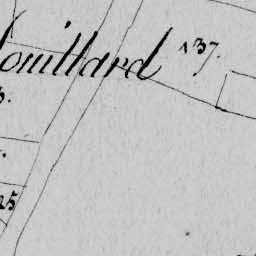 ouillard 137.
3.
25